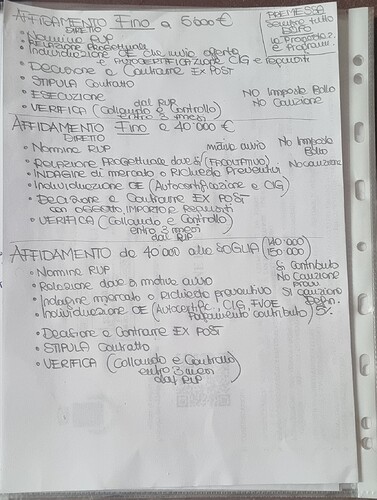 AFFIDAMENTO Fino a 5000 €
DIRETTO
PREMESSA
Sempre tutto
DOPO
la Progettaz.
e Programm.
• Nomina RUP
• RELAZIONE PROGETTUALE
• Individuazione OE che invia offerta
e AUTOCERTIFICAZIONE CIG e requisiti
• Decisione a Contrarre EX POST
• STIPULA Contratto
• ESECUZIONE
NO Imposta Bollo
NO Cauzione
• VERIFICA (Collaudo e Controllo)
dal RUP
entro 3 mesi
AFFIDAMENTO Fino a 40'000 €
DIRETTO
• Nomina RUP
motiva avvio
No Imposta
Bollo
• RELAZIONE PROGETTUALE dove si (FACOLTATIVO)
No cauzione
• INDAGINE di mercato o Richiesta Preventivi
• Individuazione OE (Autocertificazione e CIG)
• Decisione a Contrarre EX POST
con OGGETTO, IMPORTO e Requisiti
• VERIFICA (Collaudo e Controllo)
entro 3 mesi
dal RUP
AFFIDAMENTO da 40'000 alla SOGLIA (140'000)
150'000
• Nomina RUP
Si Contributo
• Relazione dove si motiva avvio
No Cauzione
Provv.
• Indagine mercato o Richiesta preventivo
Si cauzione
Defin.
• Individuazione OE (Autocertific., CIG, FVOE,
Pagamento contributo)
5%
• Decisione a Contrarre EX POST
• STIPULA Contratto
• VERIFICA (Collaudo e Controllo)
entro 3 mesi
dal RUP